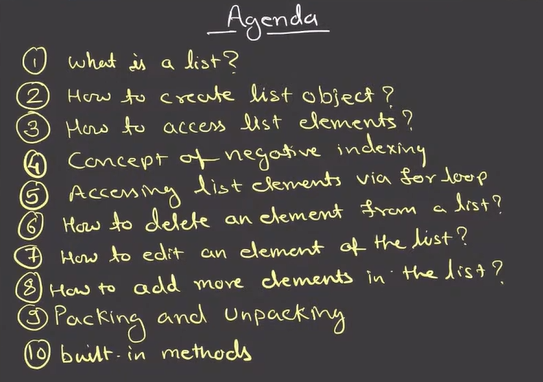 Agenda
① What is a list?
② How to create list object?
③ How to access list elements?
④ Concept of negative indexing
⑤ Accessing list elements via for loop
⑥ How to delete an element from a list?
⑦ How to edit an element of the list?
⑧ How to add more elements in the list?
⑨ Packing and Unpacking
⑩ built-in methods